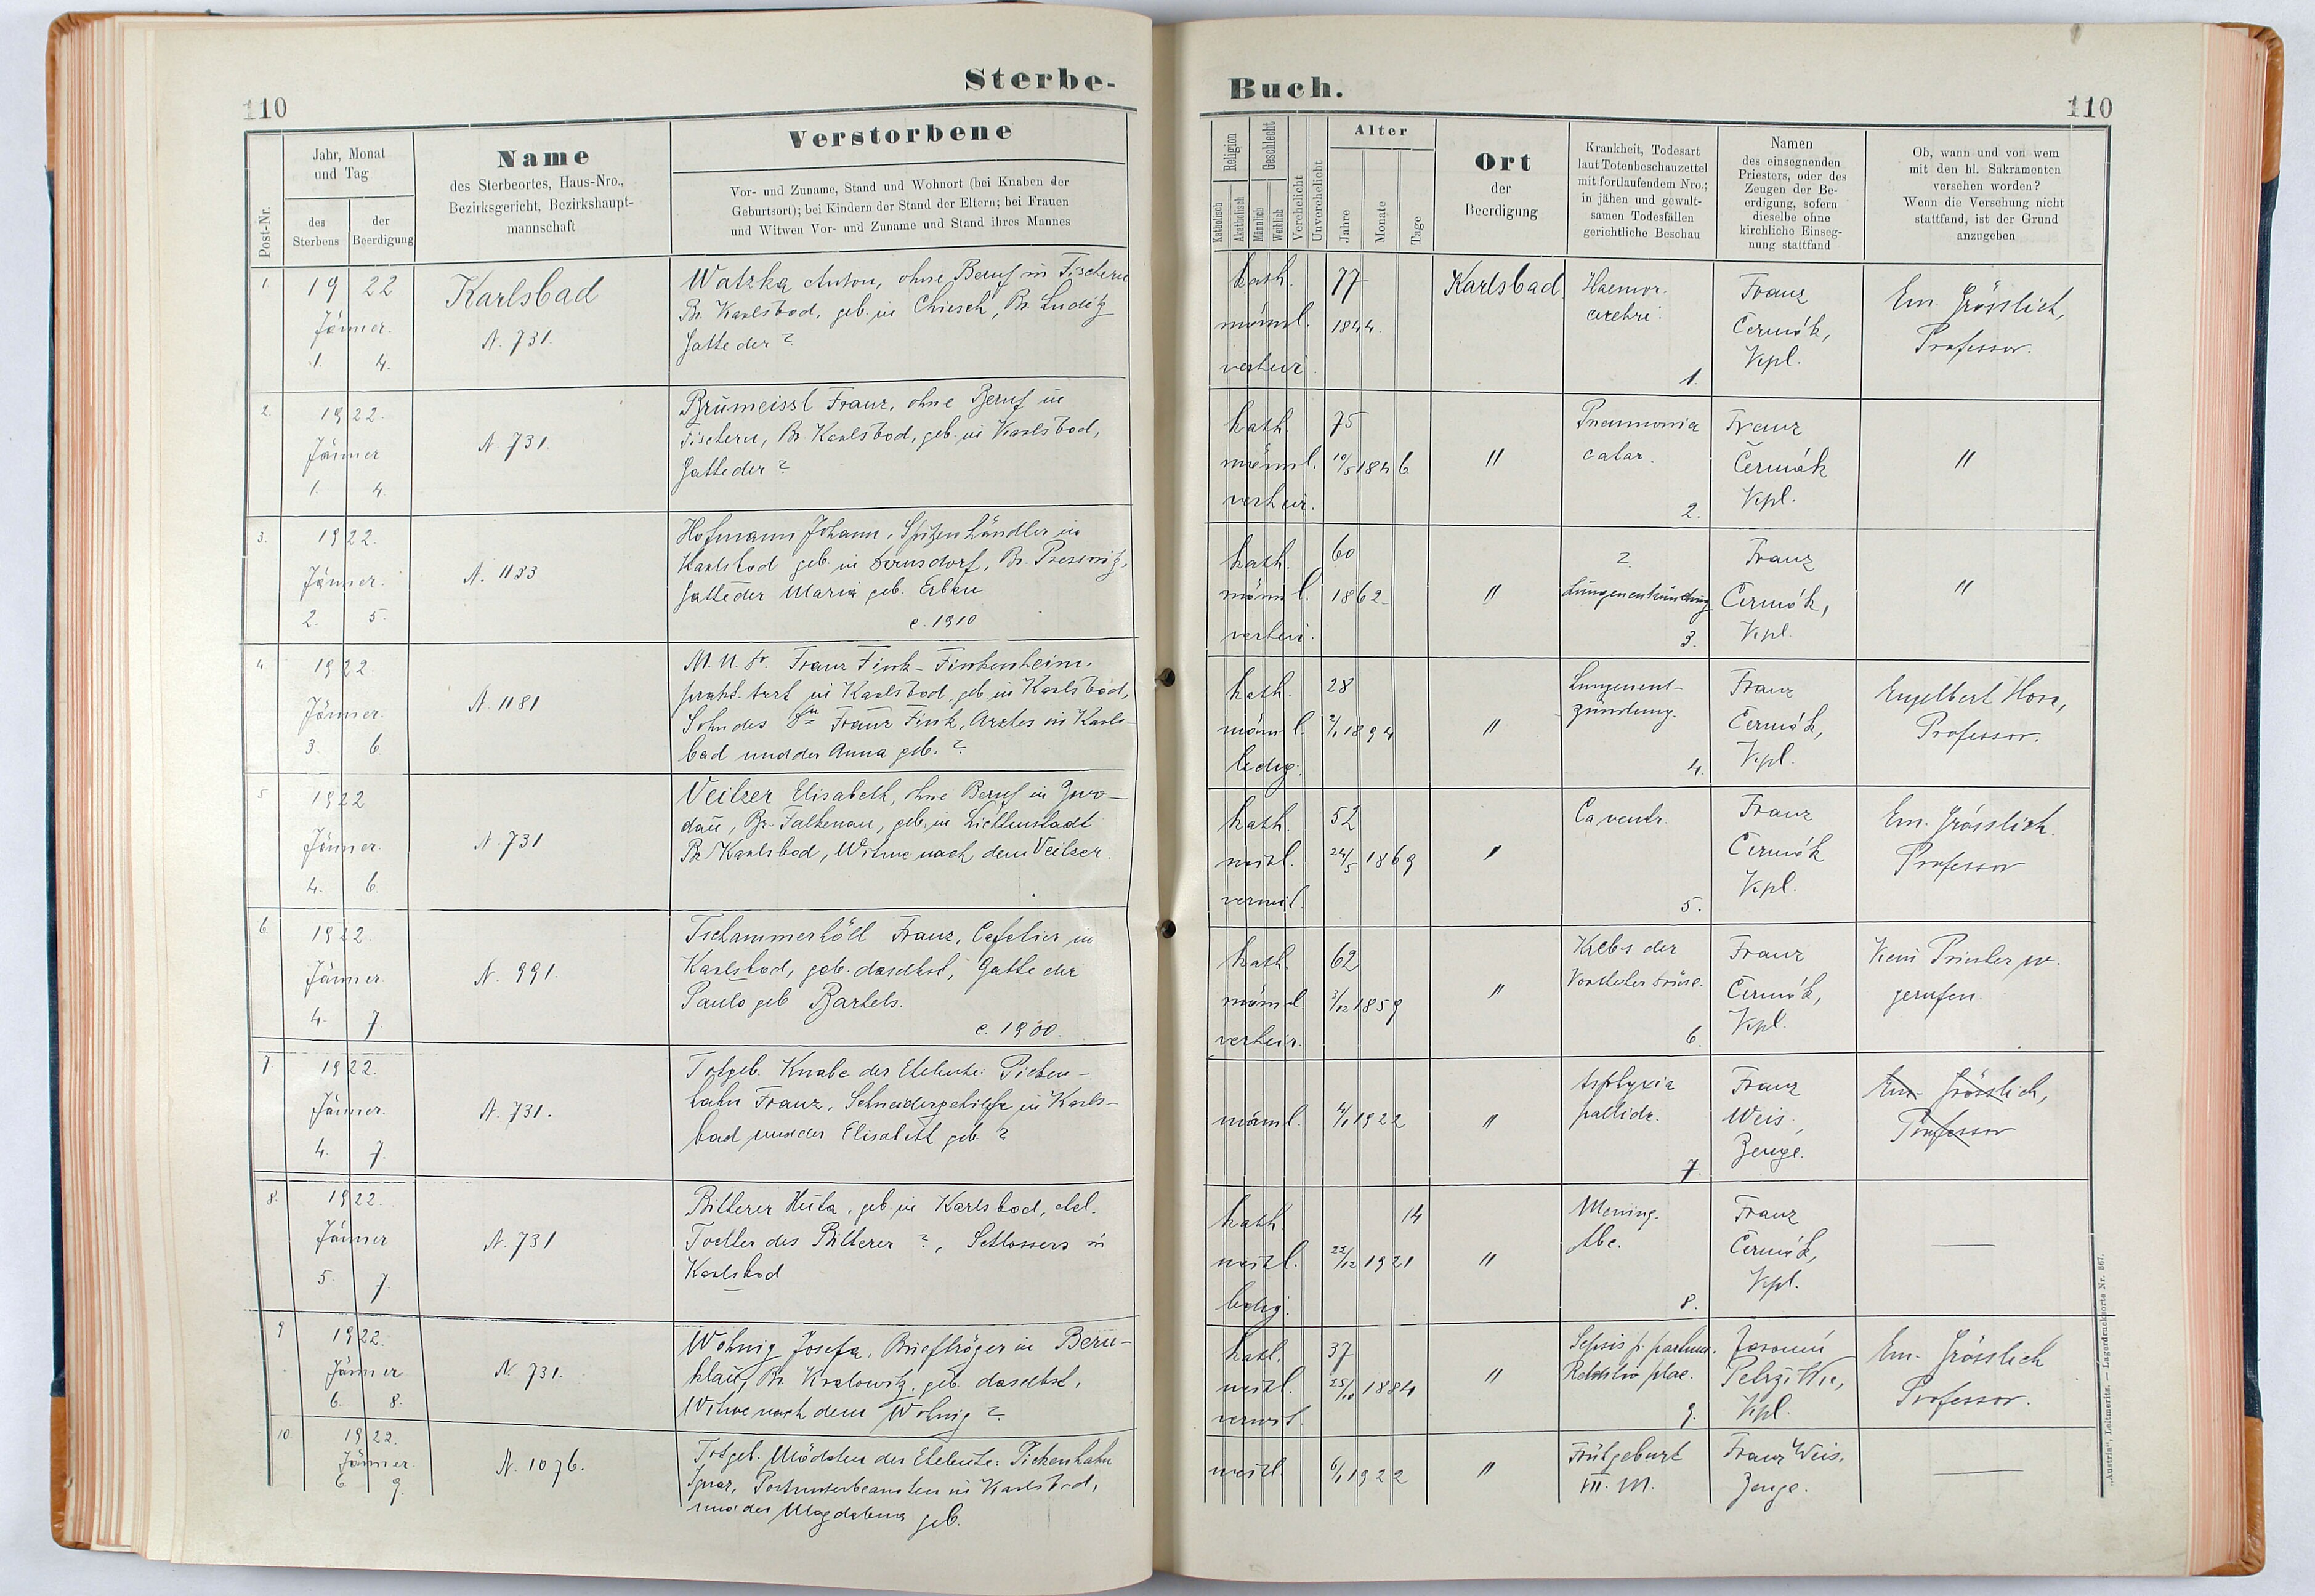 Sterbe-
110
Post-Nr.
Jahr, Monat
und Tag
des
Sterbens
der
Beerdigung
Name
des Sterbeortes, Haus-Nro.,
Bezirksgericht, Bezirkshaupt-
mannschaft
Verstorbene
Vor- und Zuname, Stand und Wohnort (bei Knaben der
Geburtsort); bei Kindern der Stand der Eltern; bei Frauen
und Witwen Vor- und Zuname und Stand ihres Mannes
1.
1922
Jänner.
1. 4.
Karlsbad
N. 731.
Watzka Anton, ohne Beruf in Fischern
Bz. Karlsbad, geb. in Chiesch, Bz. Luditz
Gatte der ?
2.
1922.
Jänner
1. 4.
N. 731.
Franz, ohne Beruf in
Fischern, Bz. Karlsbad, geb. in Karlsbad,
Gatte der ?
3.
1922.
Jänner.
2. 5.
N. 1133
Hofmann Johann, Spitzenhändler in
Karlsbad geb. in Dörnsdorf, Bz. Pressnitz,
Gatte der Maria geb. Erben
c. 1910
4
1922.
Jänner.
3. 6.
N. 1181
M. U. Dr. Franz Fink-Finkenheim.
prakt. Arzt in Karlsbad, geb. in Karlsbad,
Sohn des Franz Fink, Arztes in Karls-
bad und der Anna geb. ?
5
1922
Jänner.
4. 6.
N. 731
Veitzer Elisabeth, ohne Beruf in
Bz. Falkenau, geb. in Lichtenstadt
Bz. Karlsbad, Witwe nach dem Veitzer.
6.
1922.
Jänner.
4. 7.
N. 991.
Tschammerhöll Franz, Cafetier in
Karlsbad, geb. daselbst, Gatte der
Paula geb Bartels.
c. 1900.
7.
1922.
Jänner.
4. 7.
N. 731.
Totgeb. Knabe der Eheleute: Pichen-
hahn Franz, Schneidergehilfe in Karls-
bad und der Elisabeth geb. ?
8.
1922.
Jänner
5. 7.
N. 731
Bitterer Huta, geb in Karlsbad, ehel.
Tochter des Bitterer ?, Schlossers in
Karlsbad
9
1922.
Jänner
6. 8.
N. 731.
Wohnig Josefa, Briefträger in Bern-
klau, Bz. Kralowitz, geb. daselbst,
Witwe nach dem Wohnig ?.
10.
1922.
Jänner.
6. 9.
N. 1076.
Totgeb. Mädchen der Eheleute: Pichenhahn
Ignaz, in Karlsbad,
und der Magdalena geb.
Buch.
110
Religion
Geschlecht
Katholisch
Akatholisch
Männlich
Weiblich
Verehelicht
Unverehelicht
Alter
Jahre
Monate
Tage
Ort
der
Beerdigung
Krankheit, Todesart
laut Totenbeschauzettel
mit fortlaufendem Nro.;
in jähen und gewalt-
samen Todesfällen
gerichtliche Beschau
Namen
des einsegnenden
Priesters, oder des
Zeugen der Be-
erdigung, sofern
dieselbe ohne
kirchliche Einseg-
nung stattfand
Ob, wann und von wem
mit den hl. Sakramenten
versehen worden?
Wenn die Versehung nicht
stattfand, ist der Grund
anzugeben
kath.
männl.
verheir.
77
1844.
Karlsbad.
Haemor.
cerebri.
1.
Franz
Čermák,
Kpl.
Em. Grösslich,
Professor.
kath.
männl.
verheir.
75
10/5 1846
"
Pneumonia
catar.
2.
Franz
Čermák
Kpl.
"
kath.
männl.
verheir.
60
1862
"
?
Lungenentzündung
3.
Franz
Čermák,
Kpl.
"
kath.
männl.
ledig.
28
2/1 1894
"
Lungenent-
zündung.
4.
Franz
Čermák,
Kpl.
Engelbert Hora,
Professor.
kath.
weibl.
verwit.
52
24/5 1869
"
Ca ventr.
5.
Franz
Čermák
Kpl.
Em. Grösslich.
Professor
kath.
männl.
verheir.
62
3/12 1859
"
Krebs der
Vorsteherdrüse.
6.
Franz
Čermák,
Kpl.
Kein Priester
gerufen.
männl.
4/1 1922
"
Asphyxia
pallida.
7.
Franz
Weis.,
Zeuge.
Em. Grösslich,
Professor
kath.
weibl.
ledig.
14
22/12 1921
"
Mening.
tbc.
8.
Franz
Čermák,
Kpl.
kath.
weibl.
verwit.
37
25/10 1884
"
Sepsis p. partum.
Retentio plac.
9.
Kpl.
Em. Grösslich
Professor.
weibl
6/1 1922
"
Frühgeburt
VII. M.
Franz Weis.
Zeuge.
„Austria“, Leitmeritz. — Lagerdrucksorte Nr. 867.